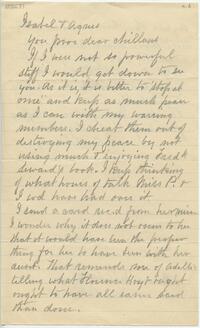 Isabel & Agnes
You poor dear chillens
If I were not so powerful
stiff I would get down to see
you. As it is, it is better to stop at
one and keep as much peace
as I can with my warring
members. I cheat them out of
destroying my peace by not
& enjoying Fred
Seward's book. I keep thinking
of what hours of talk Miss P. &
I wd have had over it.
I send a card recd from her
I wonder why it does not seem to her
that it would have been the proper
thing for her to have been with her
aunt. That reminds me of
telling what Florence Hoyt
ought to have all said
than done.